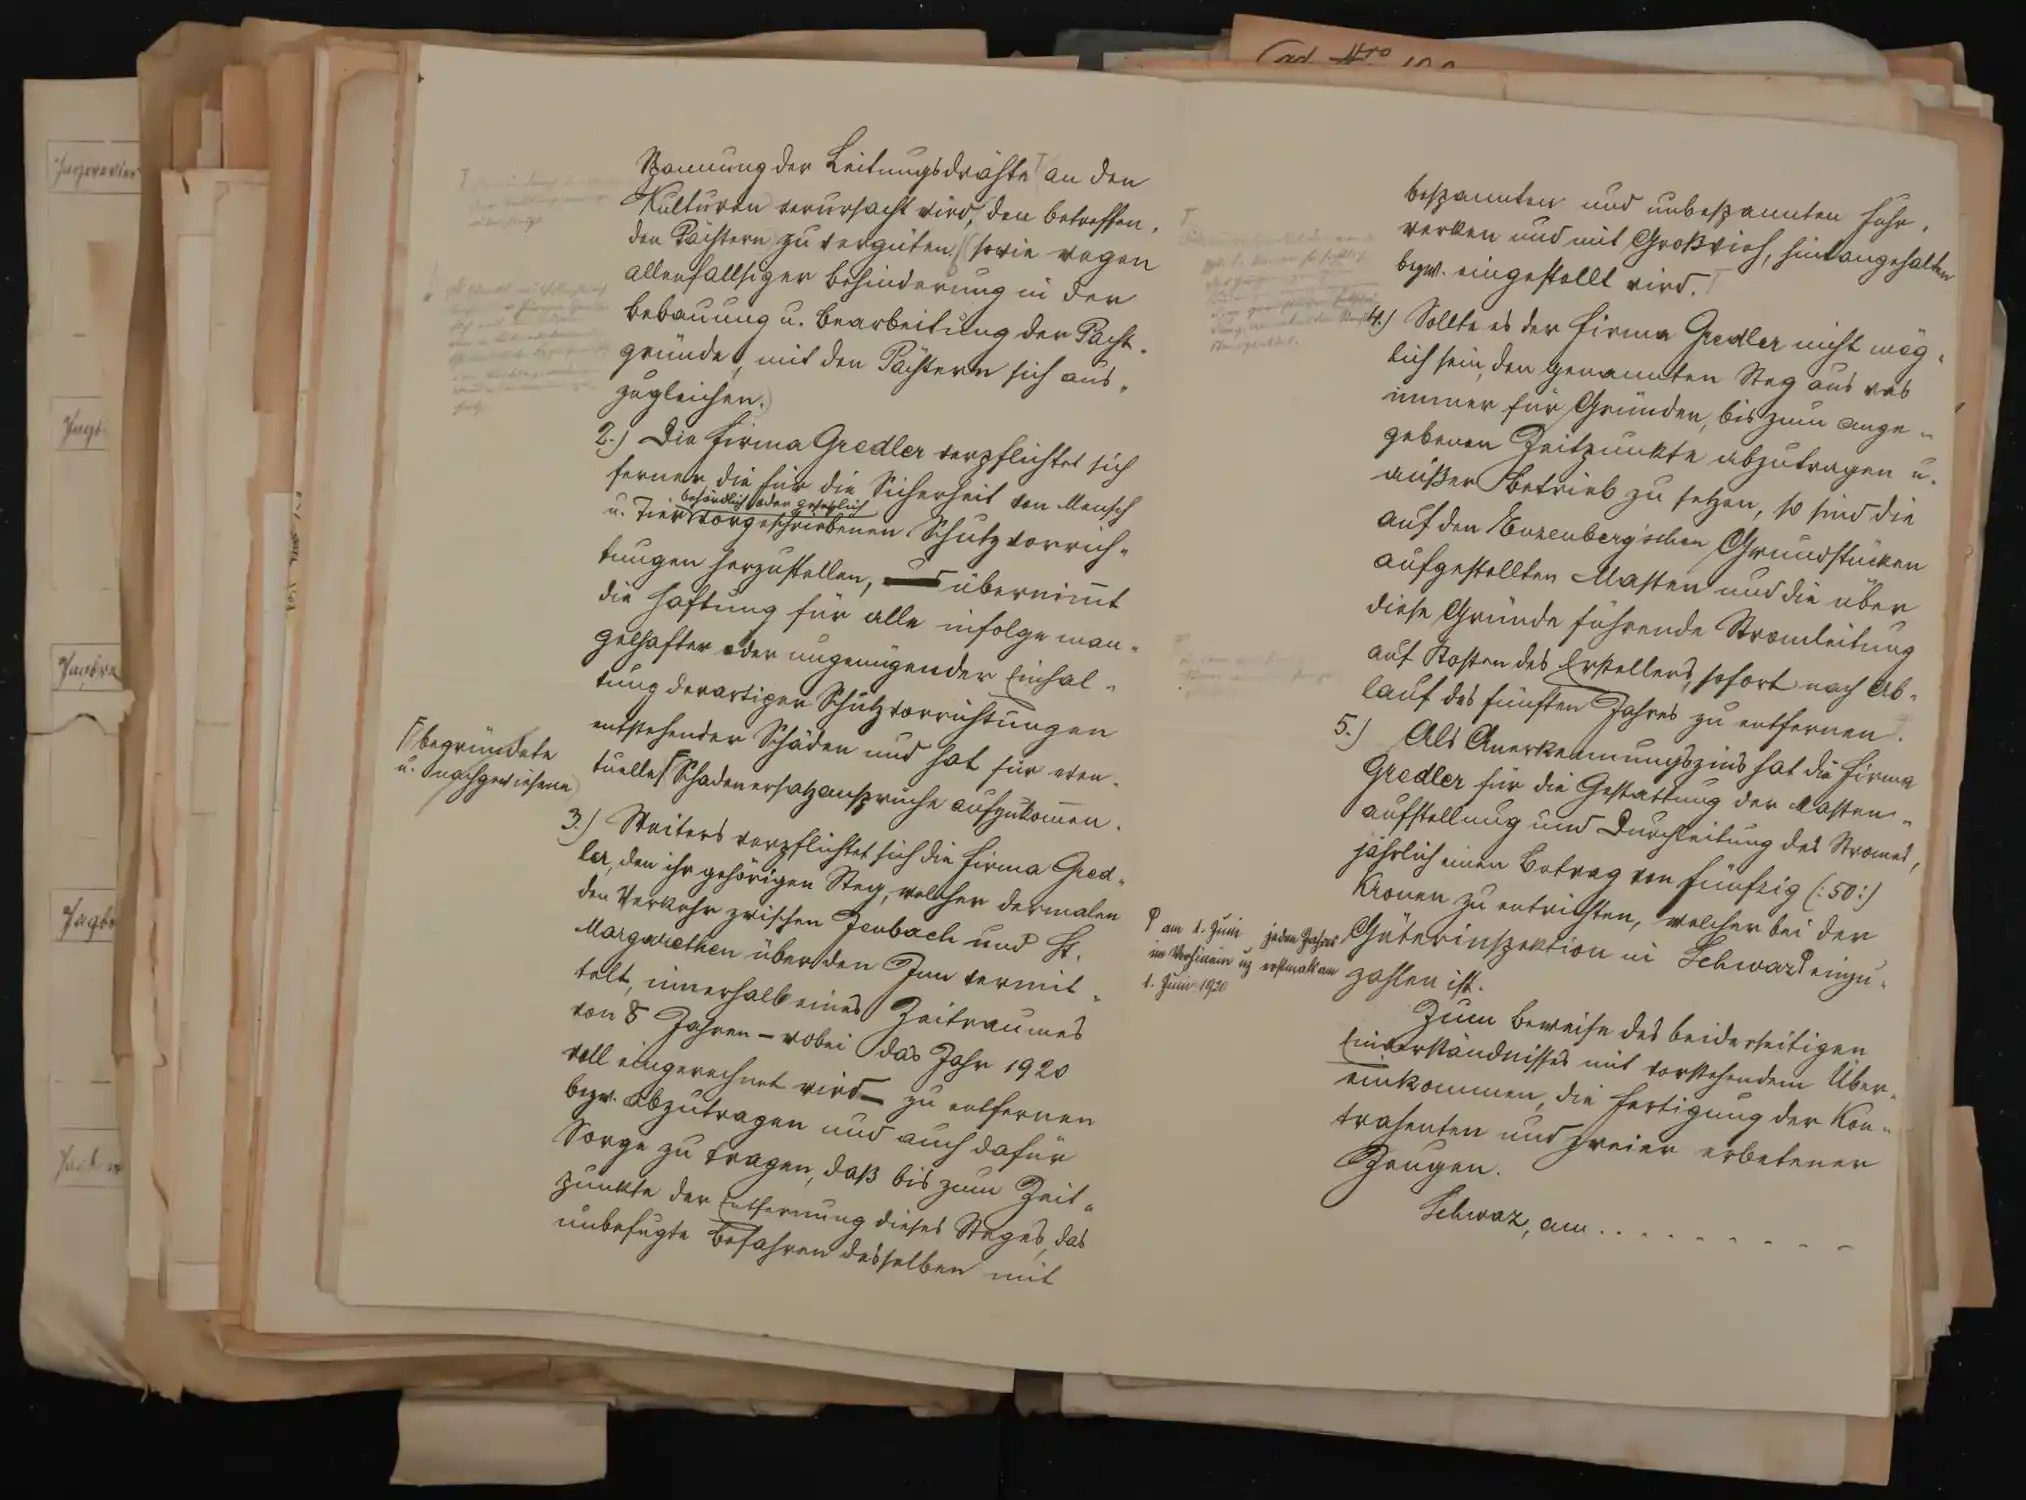 Cad. Nro 100
Jagdrevier
Spannung der Leitungsdrähte an den
Kulturen verursacht wird, den betreffen-
den Pächtern zu vergüten (sowie wegen
allenfallsiger Behinderung in der
Bebauung u. Bearbeitung der Pacht-
gründe, mit den Pächtern sich aus-
zugleichen.)
2.) Die Firma Gredler verpflichtet sich
ferner die für die Sicherheit von Mensch
behördlich oder gesetzlich
u. Tier vorgeschriebenen Schutzvorrich-
tungen herzustellen, übernimmt
die Haftung für alle infolge man-
gelhafter oder ungenügender Einhal-
tung derartiger Schutzvorrichtungen
entstehender Schäden und hat für even-
tuelle Schadenersatzansprüche aufzukommen.
begründete
u. nachgewiesene
3.) Weiters verpflichtet sich die Firma Gred-
ler, den ihr gehörigen Steg, welcher dermalen
den Verkehr zwischen Jenbach und St.
Margarethen über den Inn vermit-
telt, innerhalb eines Zeitraumes
von 5 Jahren – wobei das Jahr 1920
voll eingerechnet wird – zu entfernen
bezw. abzutragen und auch dafür
Sorge zu tragen, daß bis zum Zeit-
punkte der Entfernung dieses Steges, das
unbefugte Befahren desselben mit
bespannten und unbespannten Fuhr-
werken und mit Großvieh, hintangehalten
bezw. eingestellt wird.
4.) Sollte es der Firma Gredler nicht mög-
lich sein, den genannten Steg aus was
immer für Gründen, bis zum ange-
gebenen Zeitpunkte abzutragen u.
außer Betrieb zu setzen, so sind die
auf den Enzenberg'schen Grundstücken
aufgestellten Masten und die über
diese Gründe führende Stromleitung
auf Kosten des Erstellers, sofort nach Ab-
lauf des fünften Jahres zu entfernen.
5.) Als Anerkennungszins hat die Firma
Gredler für die Gestattung der Masten-
aufstellung und Durchleitung des Stromes,
jährlich einen Betrag von fünfzig (:50:)
Kronen zu entrichten, welcher bei der
Güterinspektion in Schwaz einzu-
zahlen ist.
am 1. Juni jeden Jahres
im Vorhinein u.z. erstmals am
1. Juni 1920
Zum Beweise des beiderseitigen
Einverständnisses mit vorstehendem Über-
einkommen, die Fertigung der Kon-
trahenten und zweier erbetener
Zeugen.
Schwaz, am . . . . . . . . .